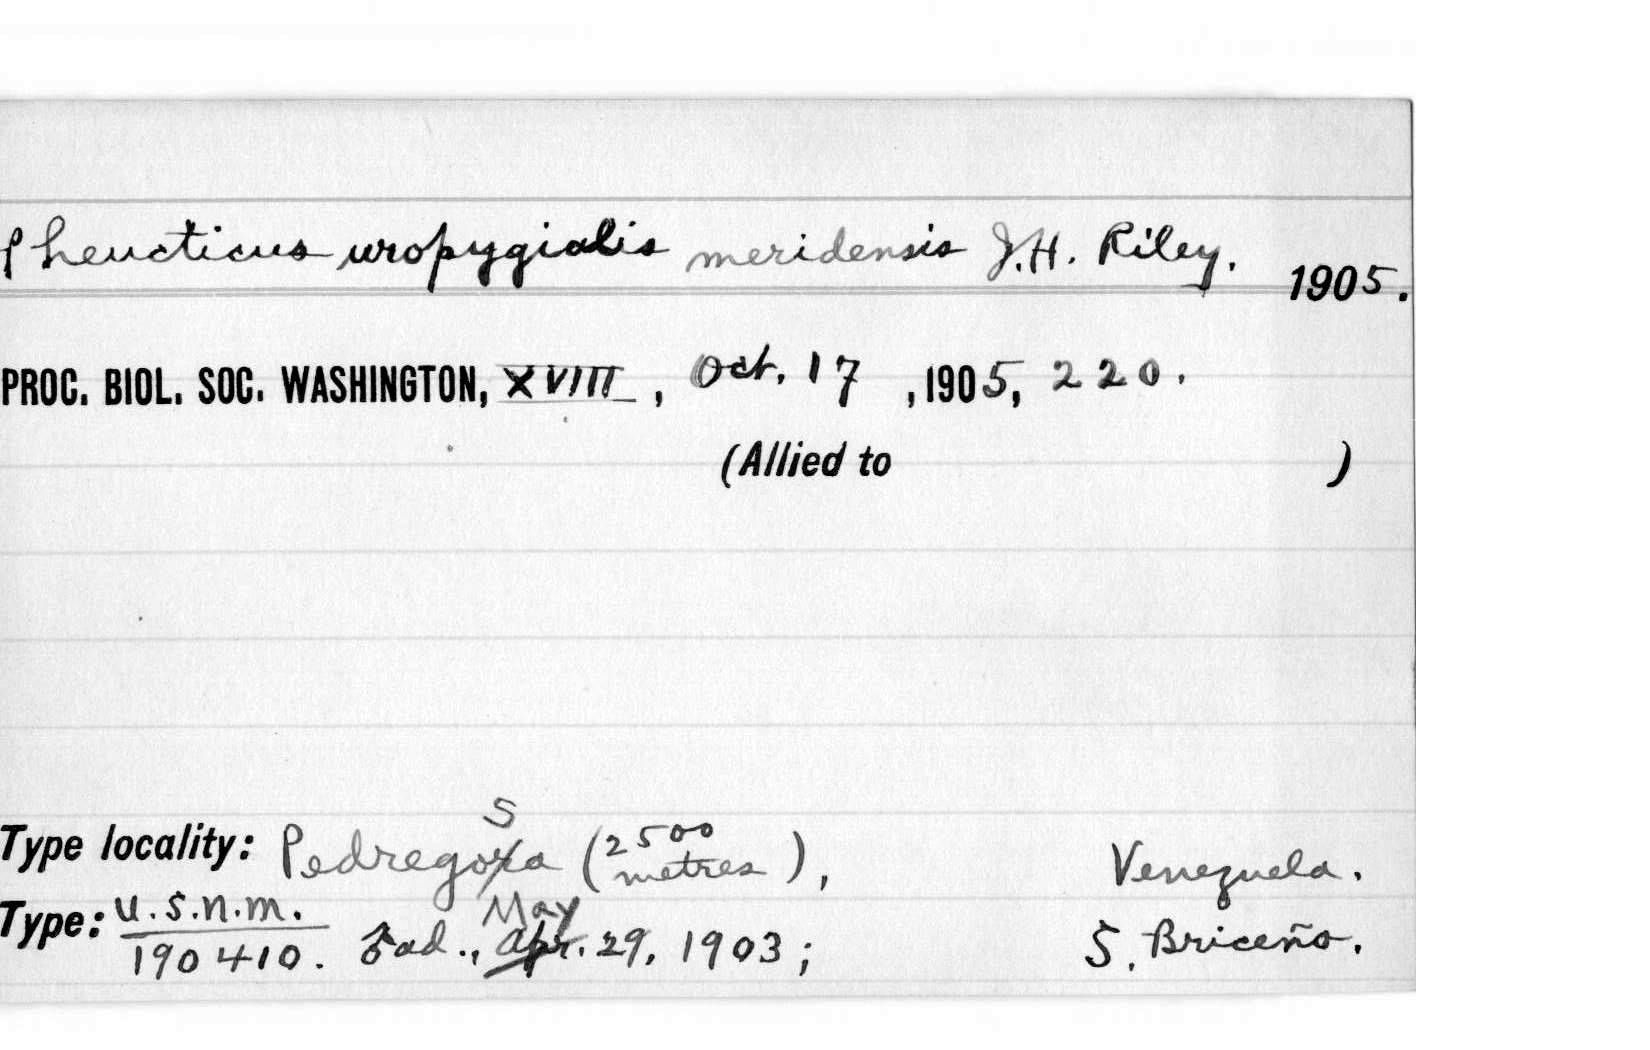 Pheucticus uropygialis meridensis J.H. Riley. 1905.
PROC. BIOL. SOC. WASHINGTON, XVIII, Oct. 17, 1905, 220.
(Allied to )
S
Type locality: Pedregoza (2500 metres), Venezuela.
May
Type: U.S.N.M. 190410. ♂ ad., Apr. 29, 1903; S. Briceño.